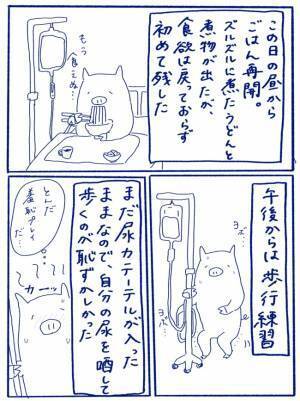 この日の昼から
ごはん再開。
ズルズルに煮たうどんと
煮物が出たが、
食欲は戻っておらず
初めて残した
もう
食えぬ…
午後からは歩行練習
ヨボ…
ヨボ…
まだ尿カテーテルが入った
ままなので、自分の尿を晒して
歩くのが恥ずかしかった
とんだ
羞恥プレイ
だ…
カーッ